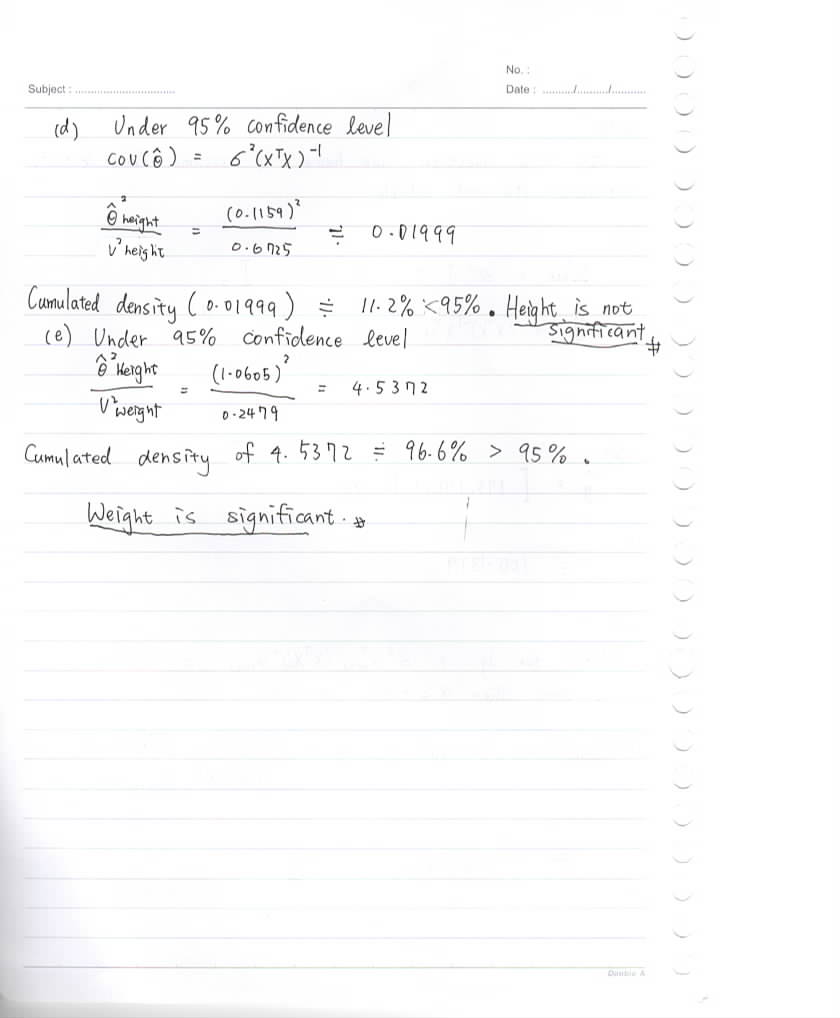 No. :
Subject : ................................
Date : ........../........../...........
(d) Under 95% confidence level
cov(θ̂) = σ²(XᵀX)⁻¹
θ̂²height / V²height = (0.1159)² / 0.6725 ≒ 0.01999
Cumulated density (0.01999) ≒ 11.2% < 95%. Height is not
significant #
(e) Under 95% confidence level
θ̂²Height / V²weight = (1.0605)² / 0.2479 = 4.5372
Cumulated density of 4.5372 ≒ 96.6% > 95%.
Weight is significant. #
Double A